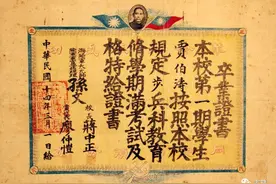 卒業證書
本校第一期學生
賈伯濤按照本校
規定步兵科教育
修學期滿考試及
格特給證書
孫文
校長 蔣中正
黨代表 廖仲愷
中華民國十四年三月一日給